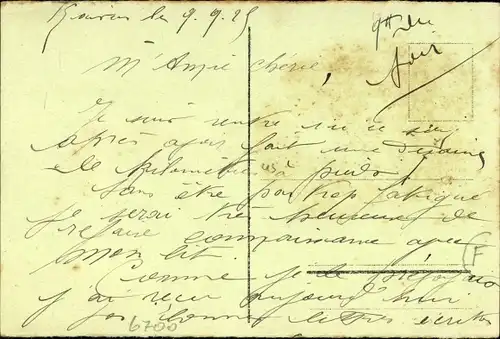 le 9.9.25
9h du
soir
M' Amie chérie,
Je suis rentré ici ce
après avoir fait une dizaine
de kilomètres à pieds!
Sans être par trop fatigué
je serai très heureux de
refaire connaissance avec
mon lit.
F
Comme je le
j'ai reçu aujourd'hui
bonnes lettres écrites
6700